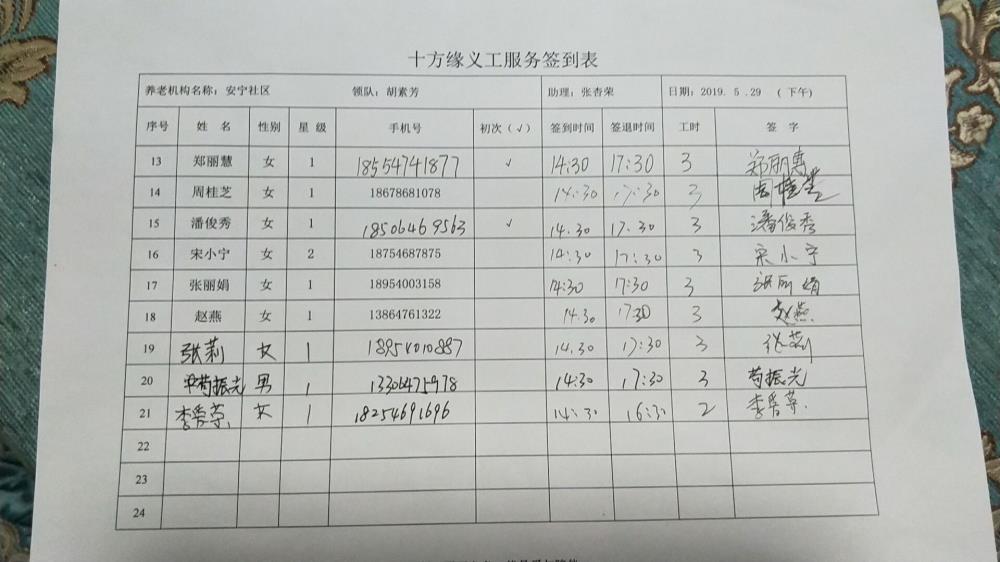 十方缘义工服务签到表
养老机构名称：安宁社区 领队：胡素芳 助理：张杏荣 日期：2019．5．29 （下午）
序号 姓 名 性别 星 级 手机号 初次（√） 签到时间 签退时间 工时 签 字
13 郑丽慧 女 1 18554741877 √ 14:30 17:30 3 郑丽慧
14 周桂芝 女 1 18678681078 14:30 17:30 3 周桂芝
15 潘俊秀 女 1 18506469563 √ 14:30 17:30 3 潘俊秀
16 宋小宁 女 2 18754687875 14:30 17:30 3 宋小宁
17 张丽娟 女 1 18954003158 14:30 17:30 3 张丽娟
18 赵燕 女 1 13864761322 14:30 17:30 3 赵燕
19 张莉 女 1 18954010887 14:30 17:30 3 张莉
20 苟振光 男 1 13306475978 14:30 17:30 3 苟振光
21 李爱英 女 1 18254691696 14:30 16:30 2 李爱英
22
23
24